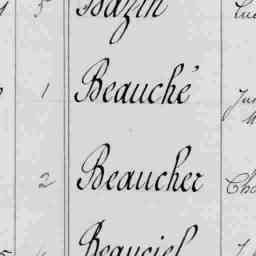 5 Bazin
1 Beauché
2 Beaucher
Beauciel